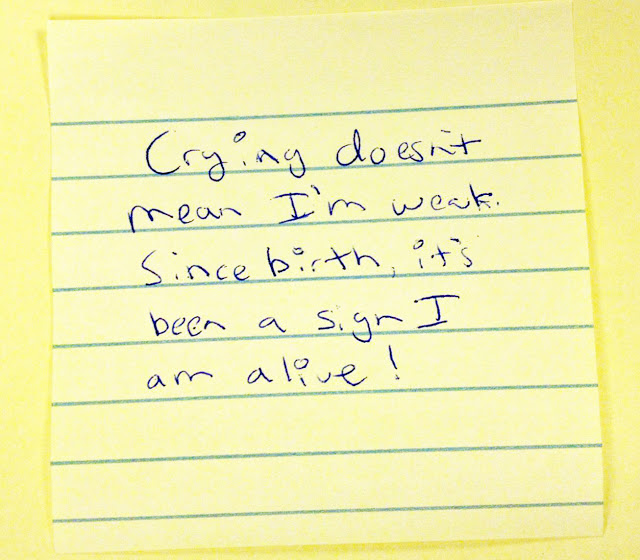 Crying doesn't
mean I'm weak.
Since birth, it's
been a sign I
am alive!